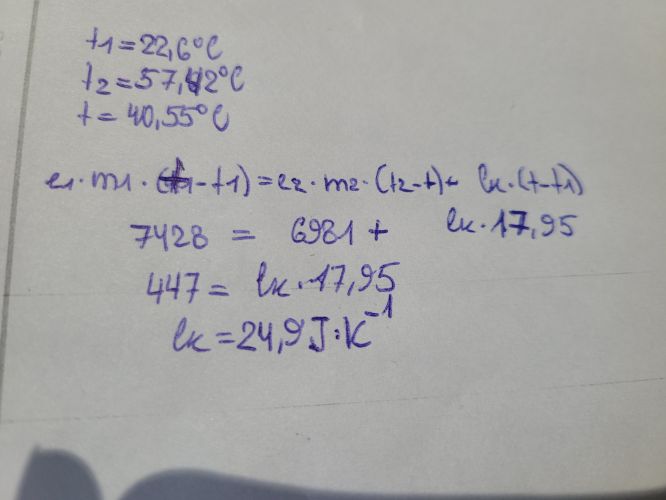 t1=22,6°C
t2=57,42°C
t=40,55°C
c1·m1·(t-t1)=c2·m2·(t2-t)+ Ck·(t-t1)
7428 = 6981 + Ck·17,95
447= Ck·17,95
Ck=24,9J·K⁻¹